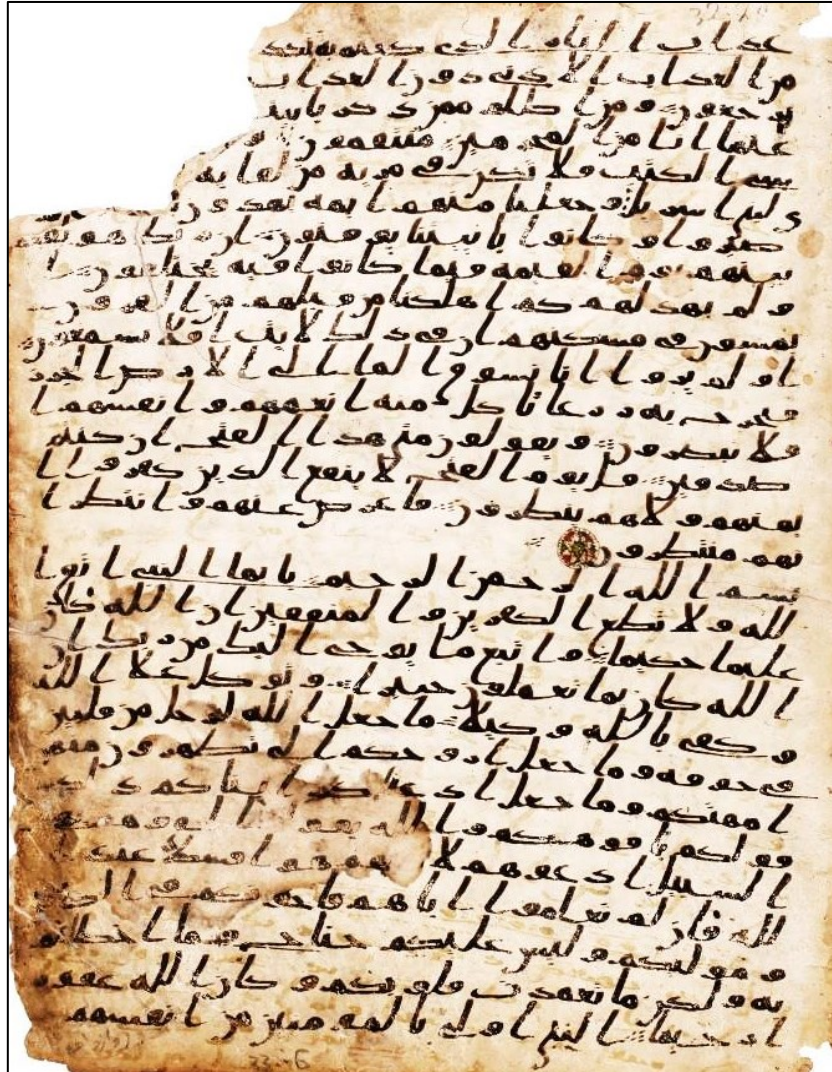 عذاب النار الذي كنتم به تكذ
من العذاب الادنى دون العذاب
يرجعون ومن اظلم ممن ذكر بايت
عنها انا من المجرمين منتقمون
سى الكتب فلا تكن في مرية من لقايه
لبني اسريل وجعلنا منهم ايمة يهدون
صبروا وكانوا بايتنا يوقنون ان ربك هو يفصل
بينهم يوم القيمة فيما كانوا فيه يختلفون ا
ولم يهد لهم كم اهلكنا من قبلهم من القرون
يمشون في مسكنهم ان في ذلك لايت افلا يسمعون
اولم يروا انا نسوق الما الى الارض الجرز
فنخرج به زرعا تاكل منه انعمهم وانفسهم ا
فلا يبصرون ويقولون متى هذا الفتح ان كنتم
صدقين قل يوم الفتح لا ينفع الذين كفروا ا
يمنهم ولا هم ينظرون فاعرض عنهم وانتظر ا
نهم منتظرون
بسم الله الرحمن الرحيم يايها النبي اتق ا
لله ولا تطع الكفرين والمنفقين ان الله كان
عليما حكيما واتبع ما يوحى اليك من ربك ان
الله كان بما تعملون خبيرا وتوكل علا الله
وكفى بالله وكيلا ما جعل الله لرجل من قلبين
في جوفه وما جعل ازوجكم الي تظهرون منهن
امهتكم وما جعل ادعياكم ابناكم ذلكم
قولكم بافوهكم والله يقول الحق وهو يهدي
السبيل ادعوهم لابايهم هو اقسط عند ا
لله فان لم تعلموا اباهم فاخونكم في الدين
وموليكم وليس عليكم جناح فيما اخطاتم
به ولكن ما تعمدت قلوبكم وكان الله غفورا
رحيما النبي اولى بالمومنين من انفسهم